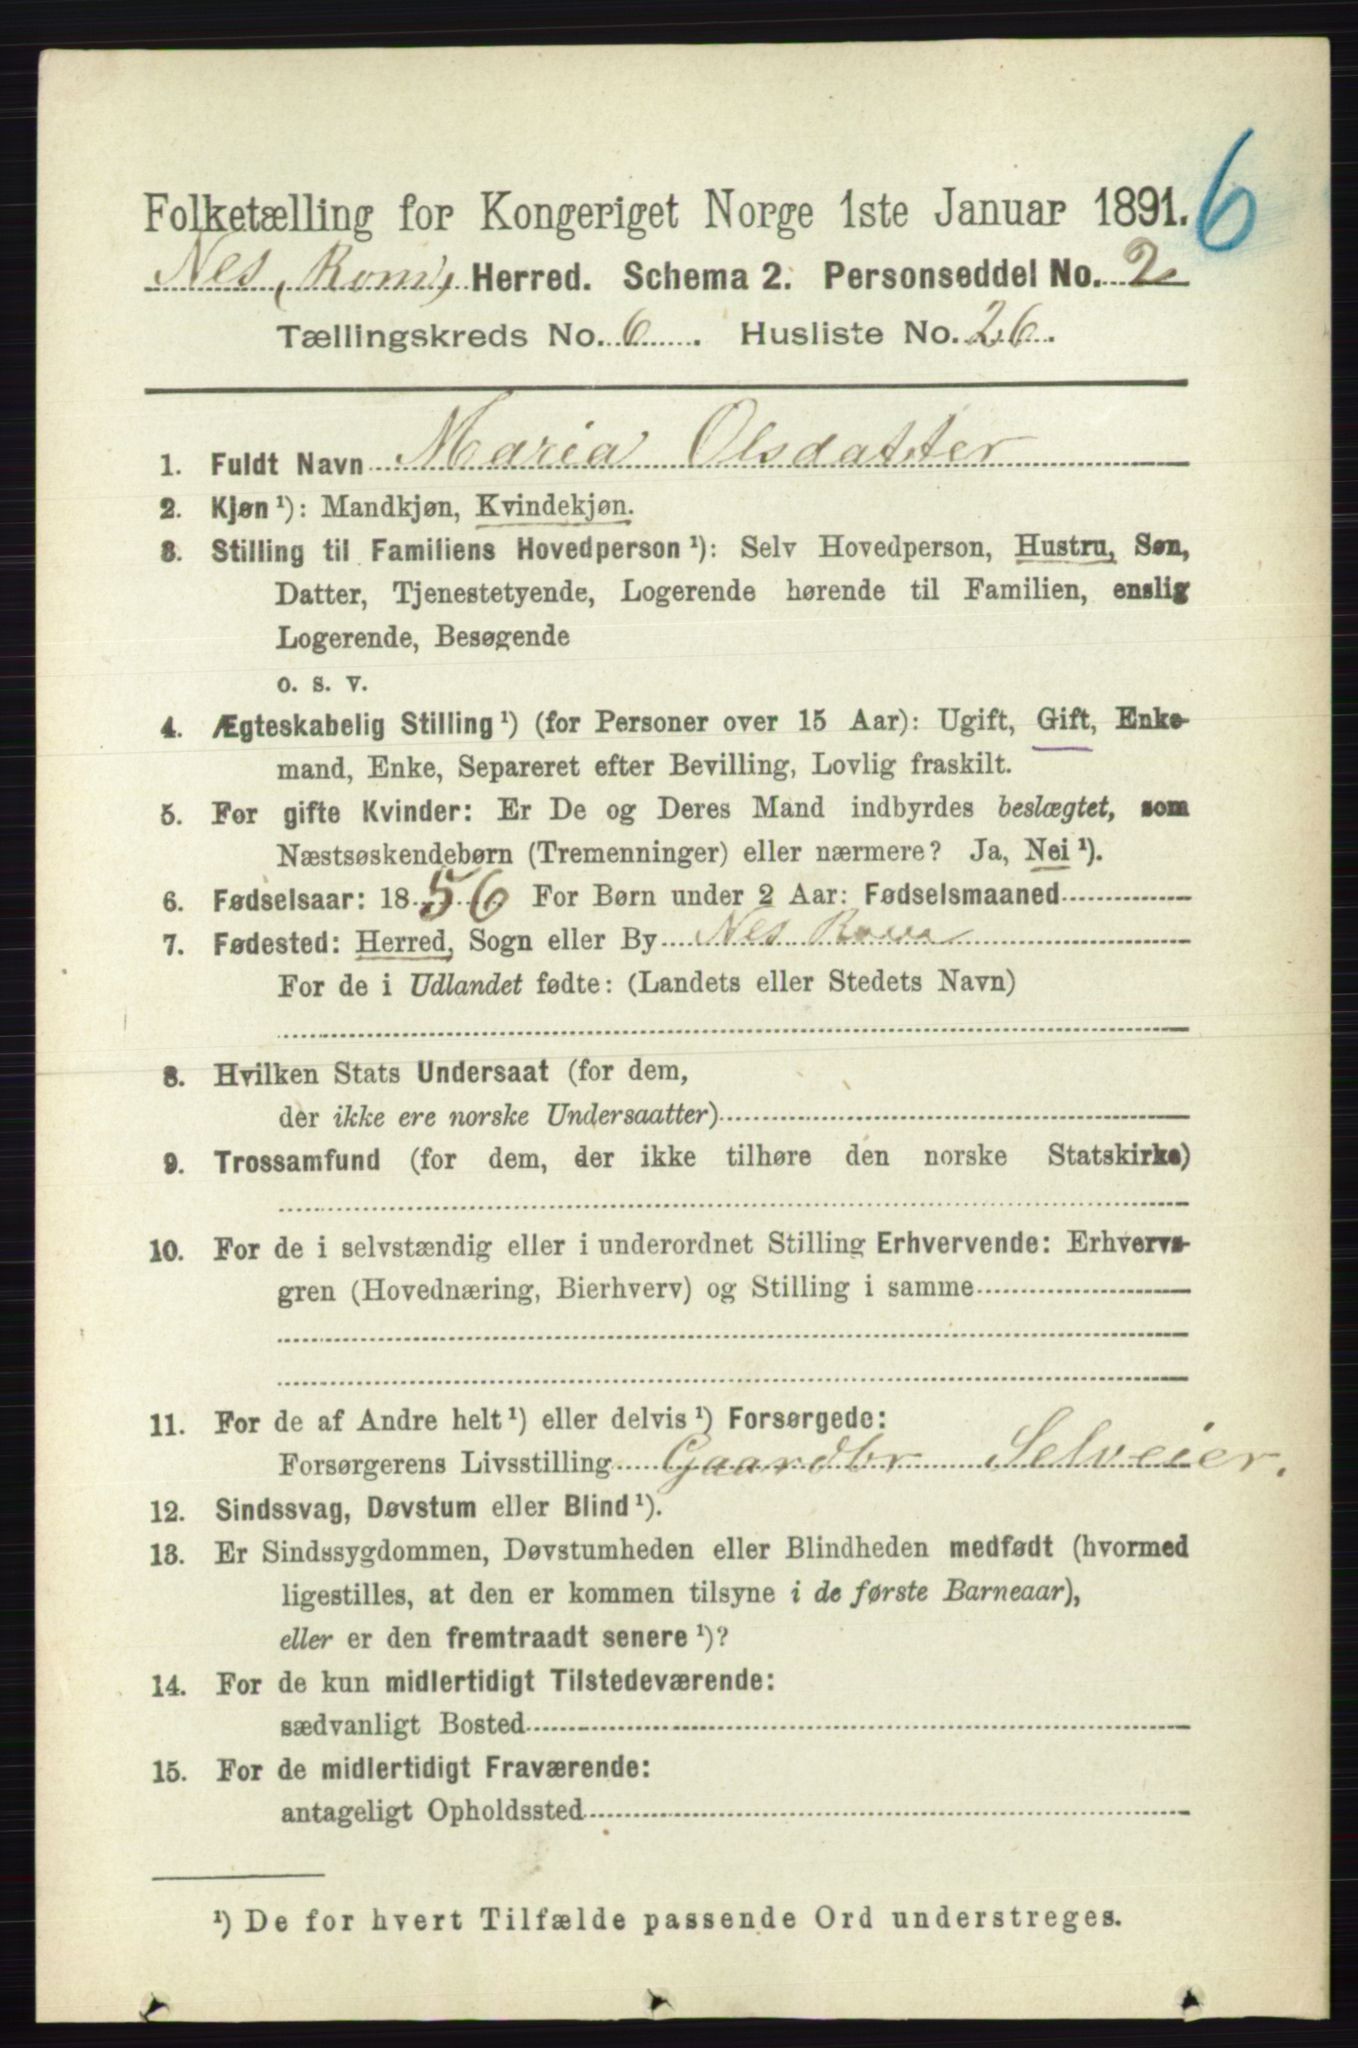 6
Folketælling for Kongeriget Norge 1ste Januar 1891.
Nes, (Rom), Herred. Schema 2. Personseddel No. 2
Tællingskreds No. 6. Husliste No. 26.
1. Fuldt Navn Maria Olsdatter
2. Kjøn ¹): Mandkjøn, Kvindekjøn.
3. Stilling til Familiens Hovedperson ¹): Selv Hovedperson, Hustru, Søn,
Datter, Tjenestetyende, Logerende hørende til Familien, enslig
Logerende, Besøgende
o. s. v.
4. Ægteskabelig Stilling ¹) (for Personer over 15 Aar): Ugift, Gift, Enke-
mand, Enke, Separeret efter Bevilling, Lovlig fraskilt.
5. For gifte Kvinder: Er De og Deres Mand indbyrdes beslægtet, som
Næstsøskendebørn (Tremenninger) eller nærmere? Ja, Nei ¹).
6. Fødselsaar: 1856 For Børn under 2 Aar: Fødselsmaaned
7. Fødested: Herred, Sogn eller By Nes Rom
For de i Udlandet fødte: (Landets eller Stedets Navn)
8. Hvilken Stats Undersaat (for dem,
der ikke ere norske Undersaatter)
9. Trossamfund (for dem, der ikke tilhøre den norske Statskirke)
10. For de i selvstændig eller i underordnet Stilling Erhvervende: Erhvervs-
gren (Hovednæring, Bierhverv) og Stilling i samme
11. For de af Andre helt ¹) eller delvis ¹) Forsørgede:
Forsørgerens Livsstilling Gaardbr Selveier.
12. Sindssvag, Døvstum eller Blind ¹).
13. Er Sindssygdommen, Døvstumheden eller Blindheden medfødt (hvormed
ligestilles, at den er kommen tilsyne i de første Barneaar),
eller er den fremtraadt senere ¹)?
14. For de kun midlertidigt Tilstedeværende:
sædvanligt Bosted
15. For de midlertidigt Fraværende:
antageligt Opholdssted
¹) De for hvert Tilfælde passende Ord understreges.